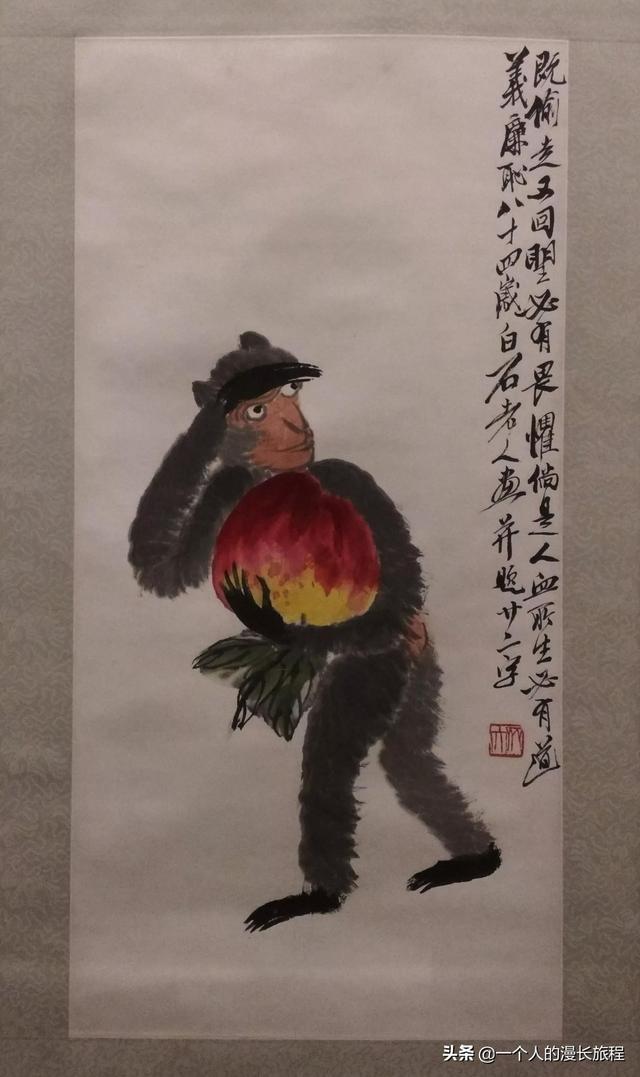 既偷走又回望必有畏懼倘是人血所生必有道
義廉恥八十四歲白石老人画并題廿二字
头条 @一个人的漫长旅程